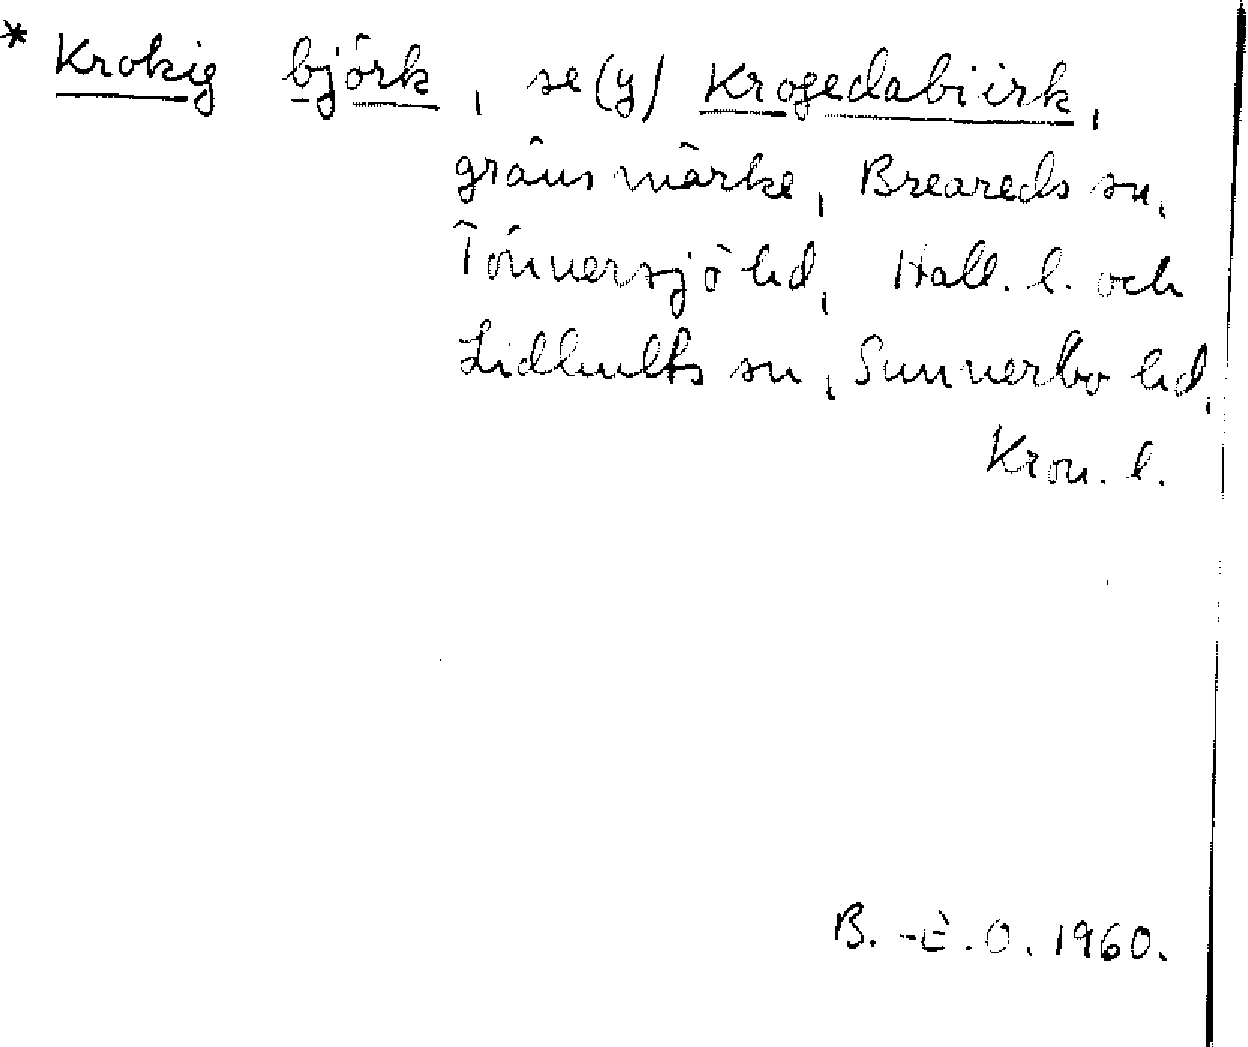 * Krokig björk, se (y) Krogedabiirk,
gränsmärke, Breareds sn,
Tönnersjö hd, Hall. l. och
Lidhults sn, Sunnerbo hd,
Kron. l.
B.-E.O. 1960.